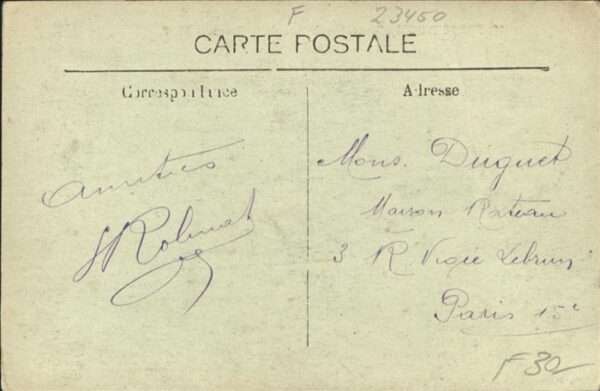 F 23450
CARTE POSTALE
Correspondance
Adresse
Amitiés
Mons. Duguet
Maison Rateau
3 R Vigée Lebrun
Paris 15e
F30